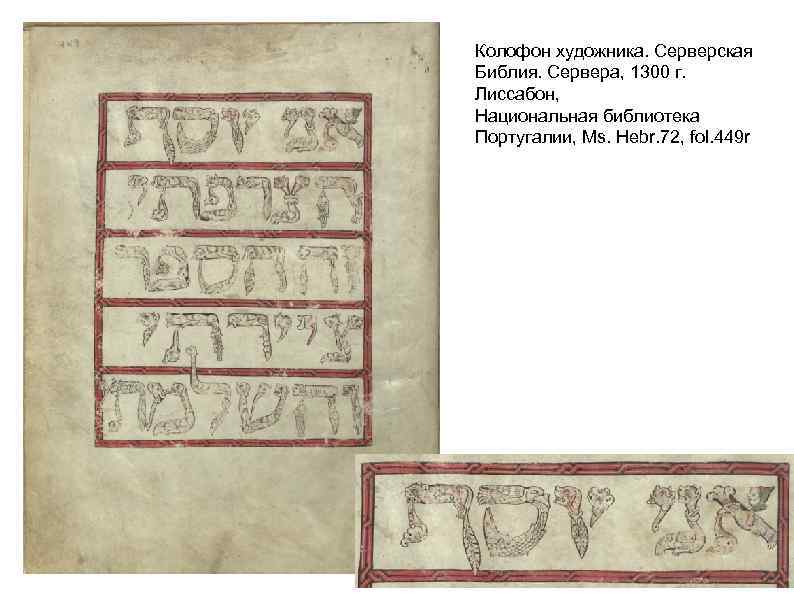 Колофон художника. Серверская
Библия. Сервера, 1300 г.
Лиссабон,
Национальная библиотека
Португалии, Ms. Hebr.72, fol.449r
אני יוסף
הצרפתי
זה הספר
ציירתי
אני יוסף